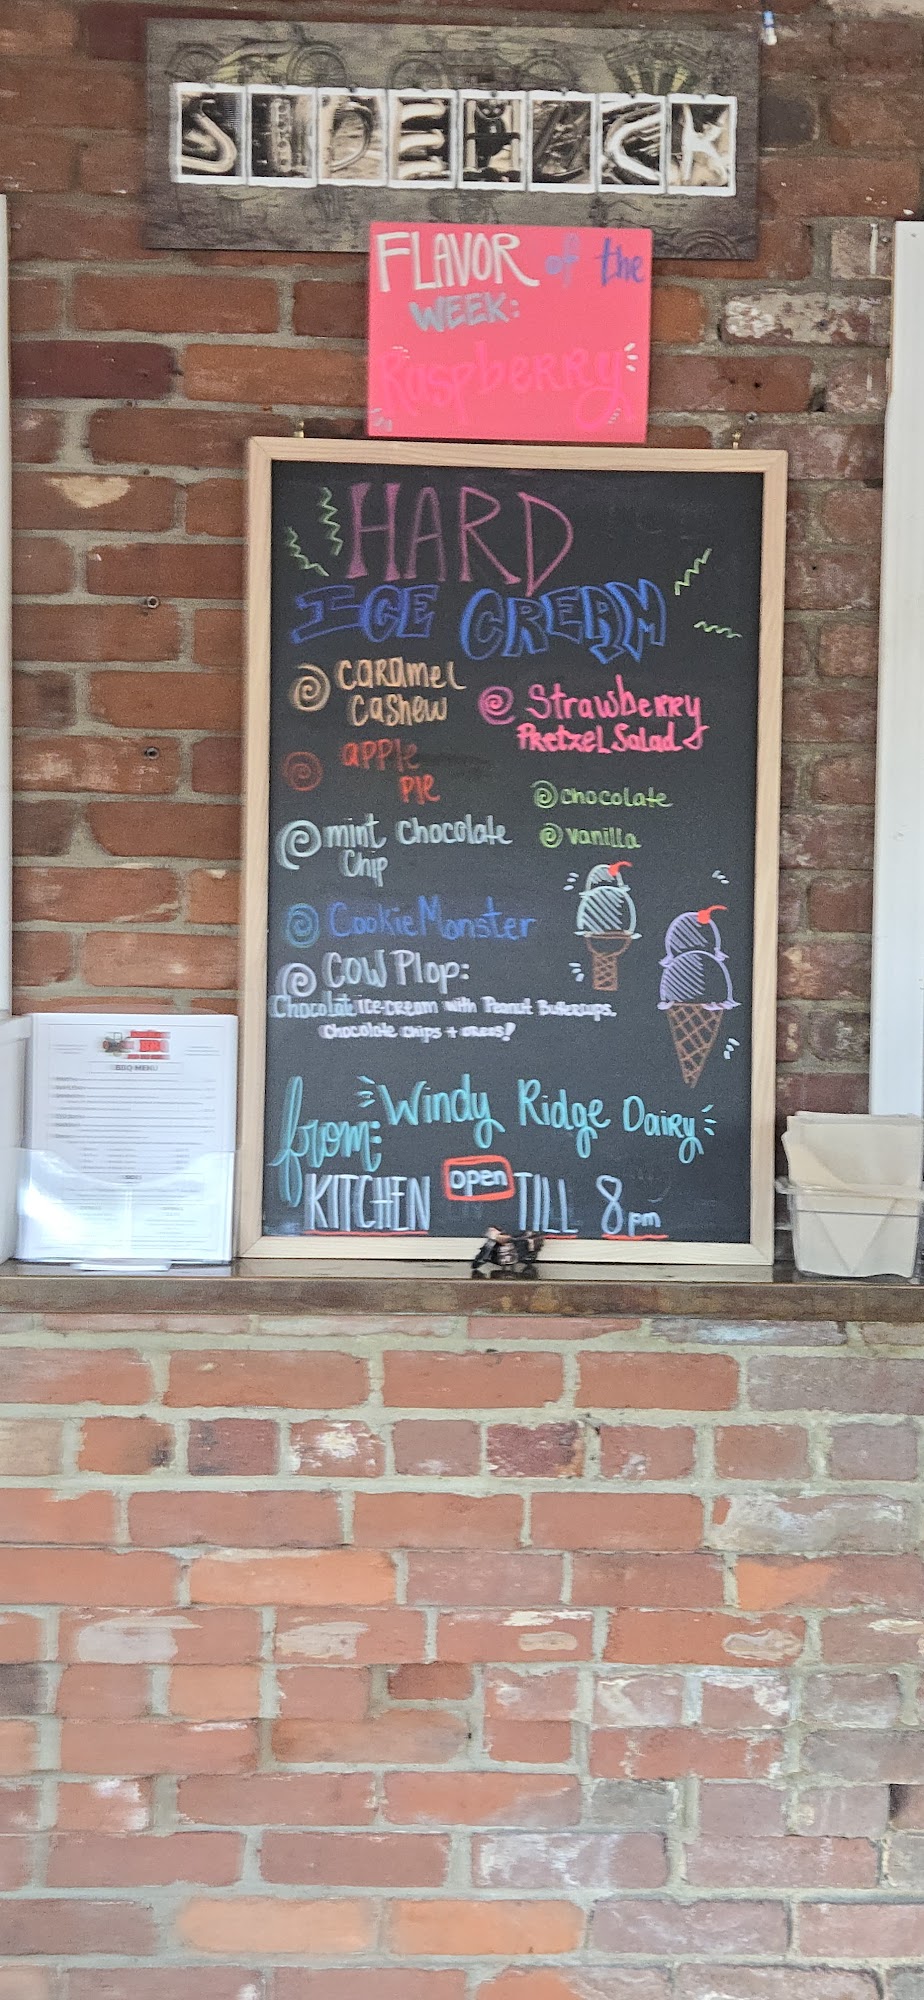 SIDEHACK
FLAVOR of the
WEEK:
Raspberry
HARD
ICE CREAM
CARAMEL
CASHEW
apple
PIE
mint Chocolate
Chip
CookieMonster
COW Plop:
Chocolate ice-cream with Peanut Butter cups.
Chocolate chips + oreos!
Strawberry
Pretzel Salad
chocolate
vanilla
from: Windy Ridge Dairy
KITCHEN open TILL 8pm
BBQ
BBQ MENU